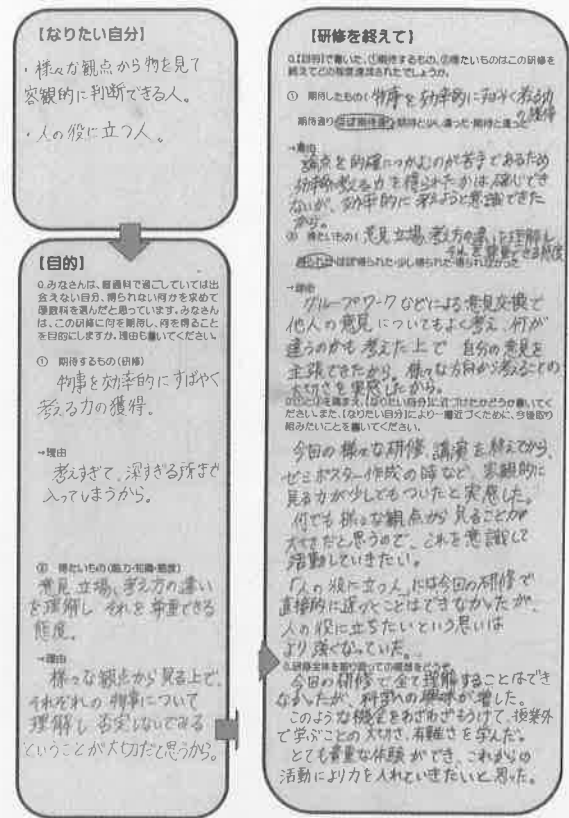 【なりたい自分】
・様々な観点から物を見て
客観的に判断できる人。
・人の役に立つ人。
【目的】
Q.みなさんは、普通科で過ごしていては出
会えない自分、得られない何かを求めて
理数科を選んだと思っています。みなさん
は、この研修に何を期待し、何を得ること
を目的にしますか。理由も書いてください。
① 期待するもの(研修)
物事を効率的にすばやく
考える力の獲得。
→理由
考えすぎて、深すぎる所まで
入ってしまうから。
② 得たいもの(能力・知識・態度)
意見、立場、考え方の違い
を理解し それを尊重できる
態度。
→理由
様々な観点から見る上で、
それぞれの物事について
理解し 否定しないでみる
ということが大切だと思うから。
【研修を終えて】
Q.【目的】で書いた、①期待するもの、②得たいものはこの研修を
終えてどの程度達成されたでしょうか。
① 期待したもの( 物事を効率的にすばやく考える力
の獲得
期待通り・ほぼ期待通り・期待と少し違った・期待と違った
→理由
論点を的確につかむのが苦手であるため
効率的考える力を得られたかは確じでき
ないが、効率的に考えようと意識できた
から。
② 得たいもの( 意見、立場、考え方の違いを理解し
それを尊重できる態度
得られた・ほぼ得られた・少し得られた・得られなかった
→理由
グループワークなどによる意見交換で
他人の意見についてもよく考え、何が
違うのかも考えた上で 自分の意見を
主張できたから。様々な方向から考えることの
大切さを実感したから。
Q.①と②を踏まえ、【なりたい自分】に近づけたかどうか書いてく
ださい。また、【なりたい自分】により一層近づくために、今後取り
組みたいことを書いてください。
今回の様々な研修、講演を終えてから、
ゼミポスター作成の時など、客観的に
見る力が少しでもついたと実感した。
何でも様々な観点から見ることが
大切だと思うので、これを意識して
活動していきたい。
「人の役に立つ人」には今回の研修で
直接的に近づくことはできなかったが、
人の役に立ちたいという思いは
より強くなっていた。
Q.研修全体を振り返っての感想をどうぞ。
今回の研修で全て理解することはでき
なかったが、科学への興味が増した。
このような機会をわざわざもうけて、授業外
で学ぶことの大切さ、有難さを学んだ。
とても貴重な体験ができ、これからの
活動により力を入れていきたいと思った。